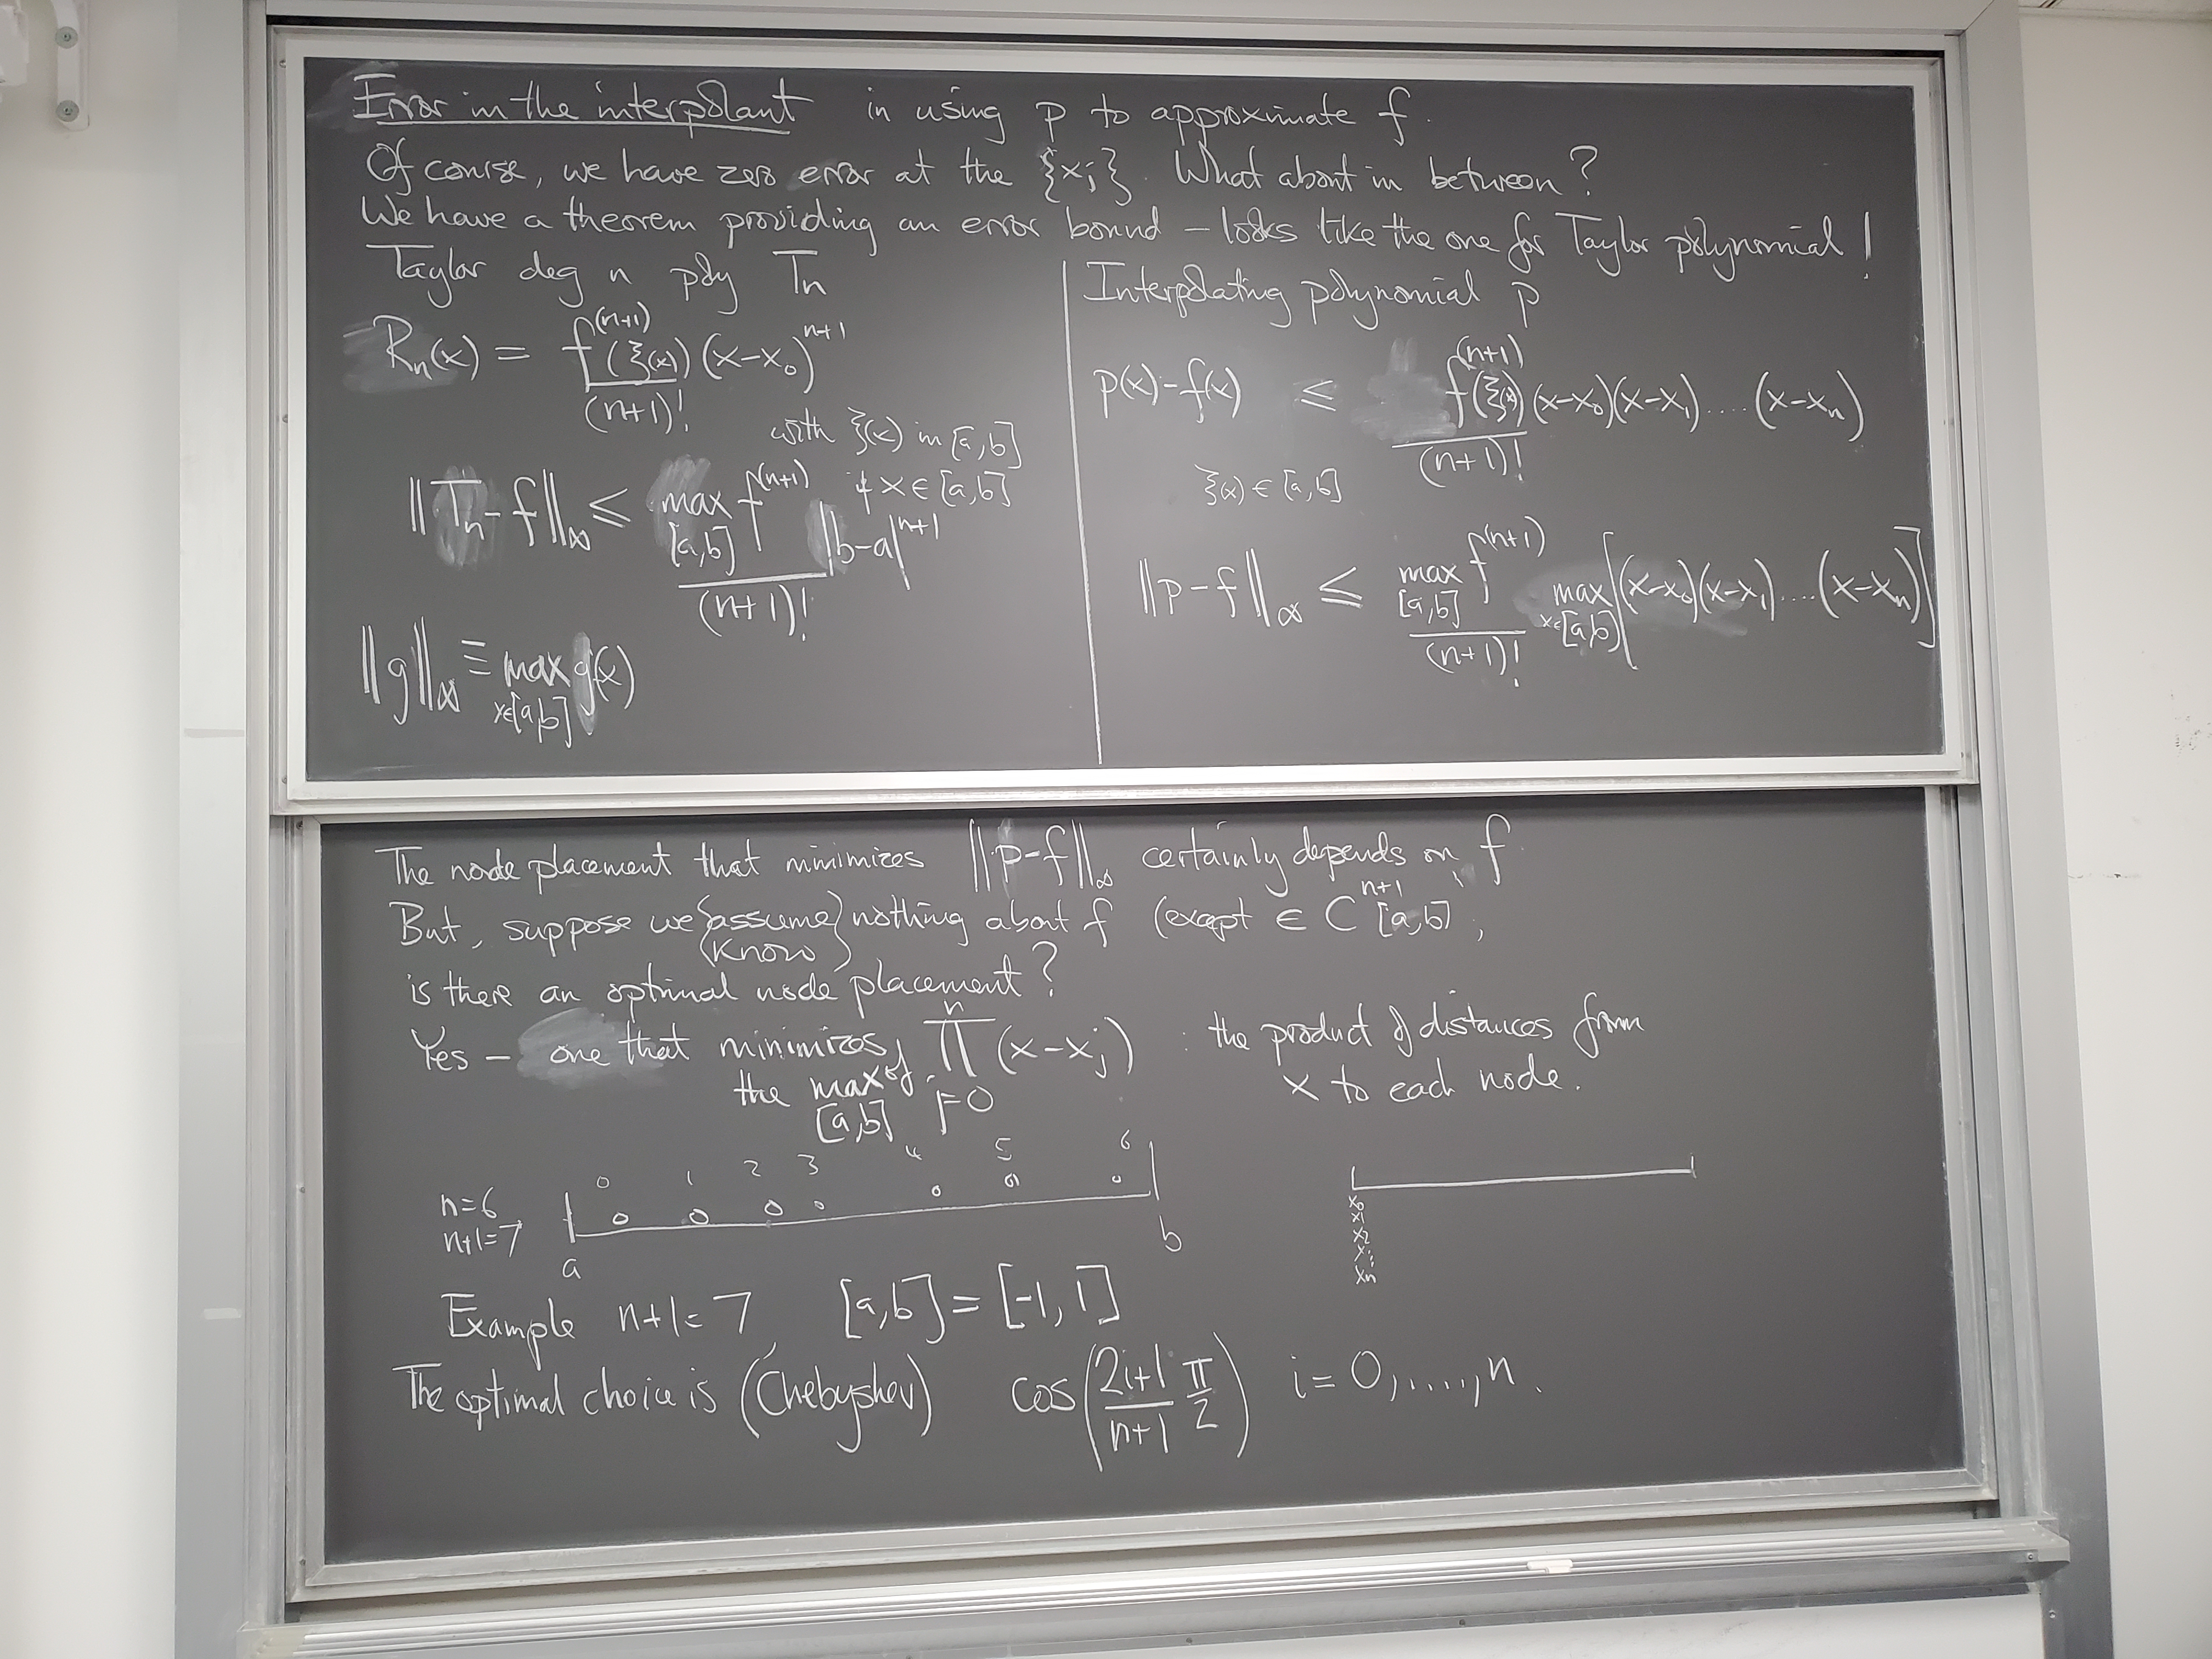 Error in the interpolant in using p to approximate f.
Of course, we have zero error at the {xj}. What about in between?
We have a theorem providing an error bound – looks like the one for Taylor polynomial!
Taylor deg n poly Tn
Rn(x) = f^(n+1)(ξ(x)) (x-x0)^n+1
(n+1)!
with ξ(x) in [a,b]
if x ∈ [a,b]
||Tn - f||∞ ≤ max f^(n+1) |b-a|^n+1
[a,b]
(n+1)!
||g||∞ ≡ max g(x)
x∈[a,b]
Interpolating polynomial p
p(x)-f(x) ≤ f^(n+1)(ξ(x)) (x-x0)(x-x1)....(x-xn)
(n+1)!
ξ(x) ∈ [a,b]
||p-f||∞ ≤ max f^(n+1) max [(x-x0)(x-x1)....(x-xn)]
[a,b] x∈[a,b]
(n+1)!
The node placement that minimizes ||p-f||∞ certainly depends on f
But, suppose we {assume} nothing about f (except ∈ C^n+1 [a,b],
{know}
is there an optimal node placement?
Yes – one that minimizes ∏ (x-xj) : the product of distances from
n
the max of j=0 x to each node.
[a,b]
0 1 2 3 4 5 6
n=6
n+1=7
a b
x0
x1
x2
x⋮
xn
Example n+1=7, [a,b]=[-1,1]
The optimal choice is (Chebyshev) cos(2i+1/n+1 π/2) i=0,....,n.